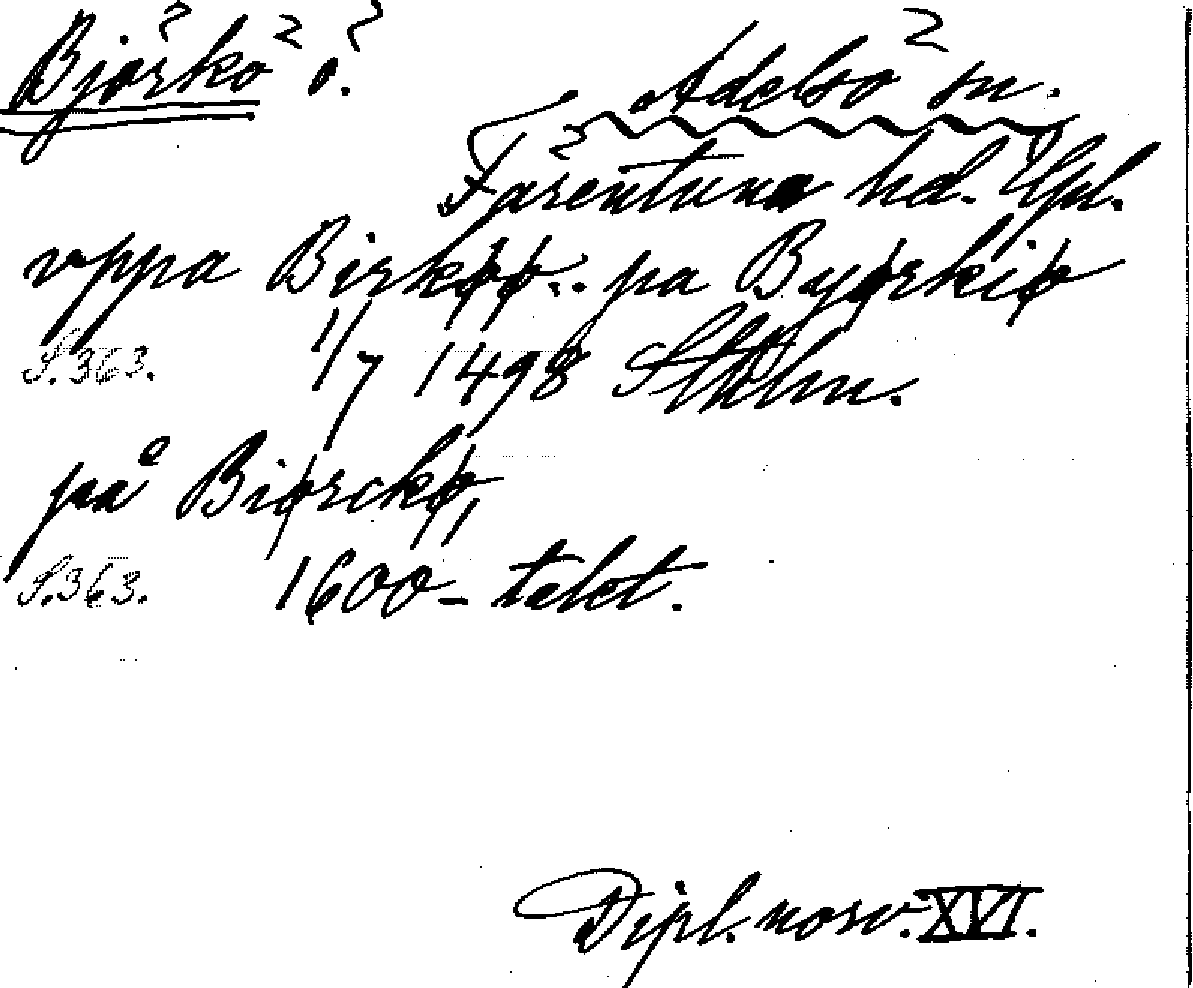 Björkö ö.
Adelsö sn.
Färentuna hd. Upl.
vppa Birkøø.. pa Byørkiø
S.363. 1/7 1498 Sthlm.
på Biørckø,
S.363. 1600-talet.
Dipl. norv. XVI.